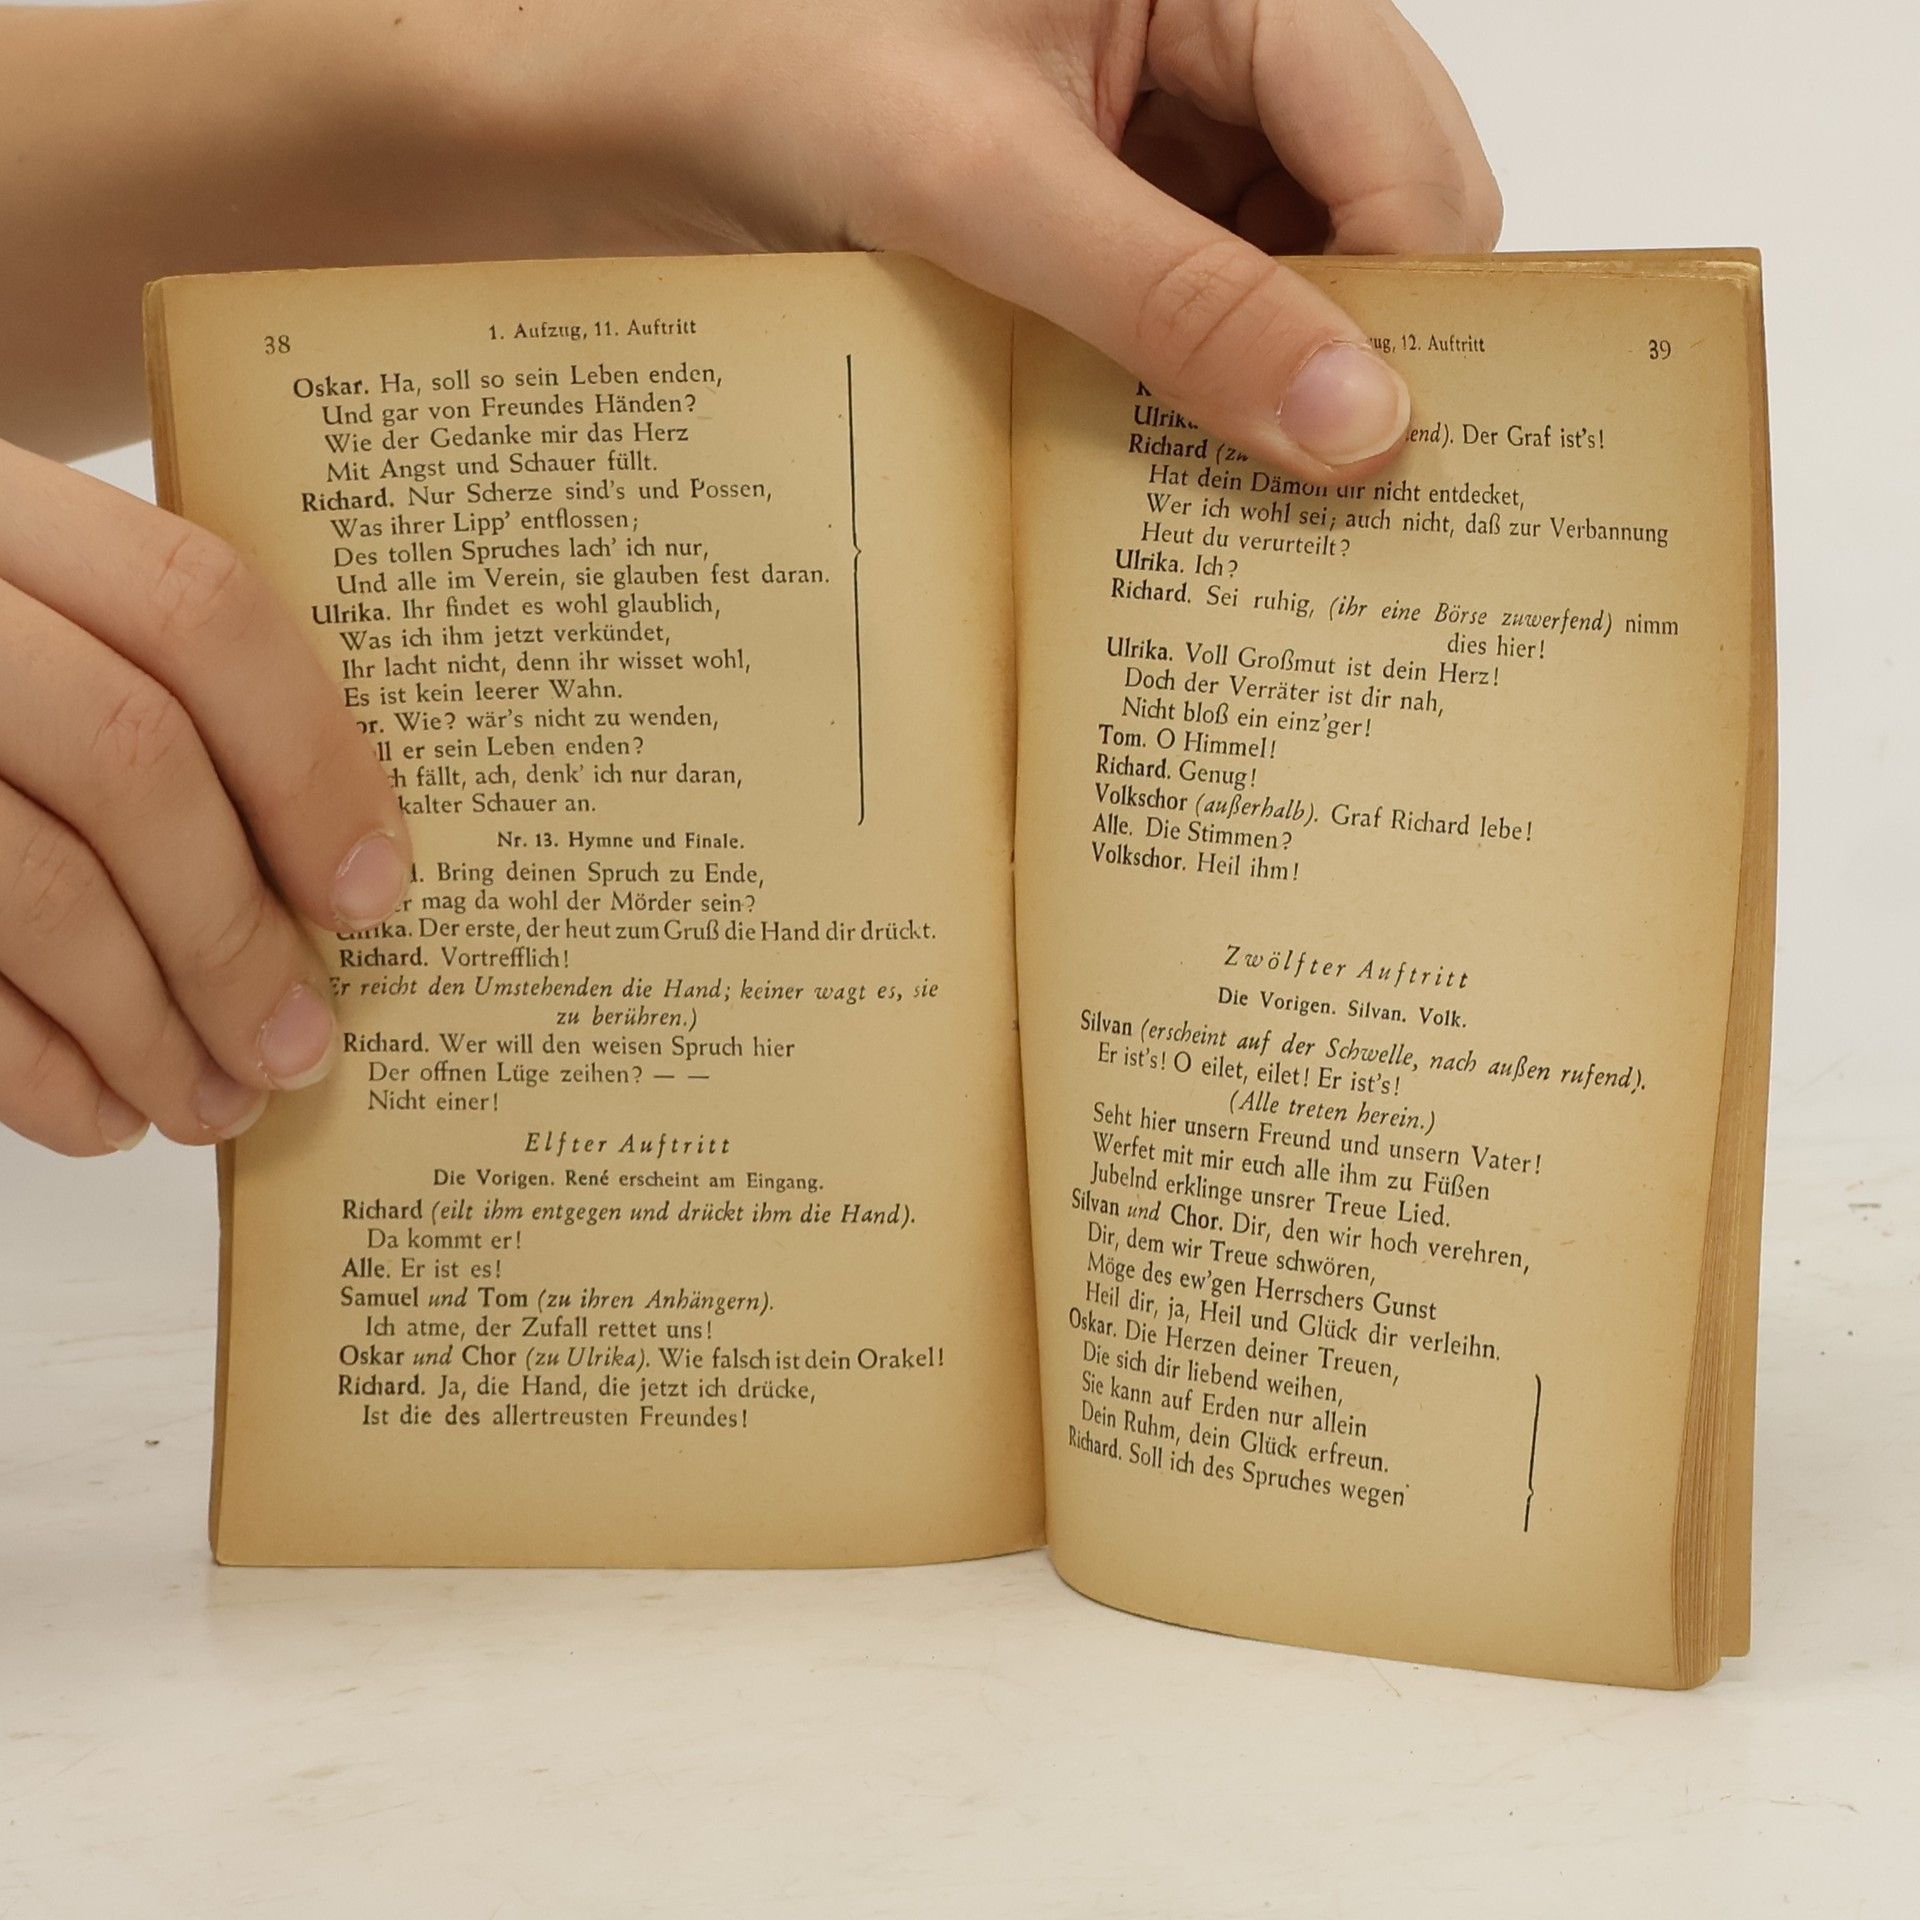 38
1. Aufzug, 11. Auftritt
Oskar. Ha, soll so sein Leben enden,
Und gar von Freundes Händen?
Wie der Gedanke mir das Herz
Mit Angst und Schauer füllt.
Richard. Nur Scherze sind's und Possen,
Was ihrer Lipp' entflossen;
Des tollen Spruches lach' ich nur,
Und alle im Verein, sie glauben fest daran.
Ulrika. Ihr findet es wohl glaublich,
Was ich ihm jetzt verkündet,
Ihr lacht nicht, denn ihr wisset wohl,
Es ist kein leerer Wahn.
Wie? wär's nicht zu wenden,
er sein Leben enden?
fällt, ach, denk' ich nur daran,
kalter Schauer an.
Nr. 13. Hymne und Finale.
Bring deinen Spruch zu Ende,
mag da wohl der Mörder sein?
Ulrika. Der erste, der heut zum Gruß die Hand dir drückt.
Richard. Vortrefflich!
Er reicht den Umstehenden die Hand; keiner wagt es, sie
zu berühren.)
Richard. Wer will den weisen Spruch hier
Der offnen Lüge zeihen? — —
Nicht einer!
Elfter Auftritt
Die Vorigen. René erscheint am Eingang.
Richard (eilt ihm entgegen und drückt ihm die Hand).
Da kommt er!
Alle. Er ist es!
Samuel und Tom (zu ihren Anhängern).
Ich atme, der Zufall rettet uns!
Oskar und Chor (zu Ulrika). Wie falsch ist dein Orakel!
Richard. Ja, die Hand, die jetzt ich drücke,
Ist die des allertreusten Freundes!
12. Auftritt
39
Ulrika Der Graf ist's!
Richard (zu
Hat dein Dämon dir nicht entdecket,
Wer ich wohl sei; auch nicht, daß zur Verbannung
Heut du verurteilt?
Ulrika. Ich?
Richard. Sei ruhig, (ihr eine Börse zuwerfend) nimm
dies hier!
Ulrika. Voll Großmut ist dein Herz!
Doch der Verräter ist dir nah,
Nicht bloß ein einz'ger!
Tom. O Himmel!
Richard. Genug!
Volkschor (außerhalb). Graf Richard lebe!
Alle. Die Stimmen?
Volkschor. Heil ihm!
Zwölfter Auftritt
Die Vorigen. Silvan. Volk.
Silvan (erscheint auf der Schwelle, nach außen rufend).
Er ist's! O eilet, eilet! Er ist's!
(Alle treten herein.)
Seht hier unsern Freund und unsern Vater!
Werfet mit mir euch alle ihm zu Füßen
Jubelnd erklinge unsrer Treue Lied.
Silvan und Chor. Dir, den wir hoch verehren,
Dir, dem wir Treue schwören,
Möge des ew'gen Herrschers Gunst
Heil dir, ja, Heil und Glück dir verleihn.
Oskar. Die Herzen deiner Treuen,
Die sich dir liebend weihen,
Sie kann auf Erden nur allein
Dein Ruhm, dein Glück erfreun.
Richard. Soll ich des Spruches wegen